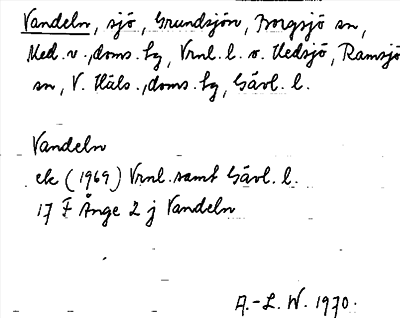 Vandeln, sjö, Grundsjön, Borgsjö sn,
Med. v., doms. hg, Vrnl. l. o. Hedsjö, Ramsjö
sn, V. Häls., doms. hg, Gävl. l.
Vandeln
ek (1969) Vrnl. samt Gävl. l.
17 F Ånge 2 j Vandeln
A.-L. W. 1970.